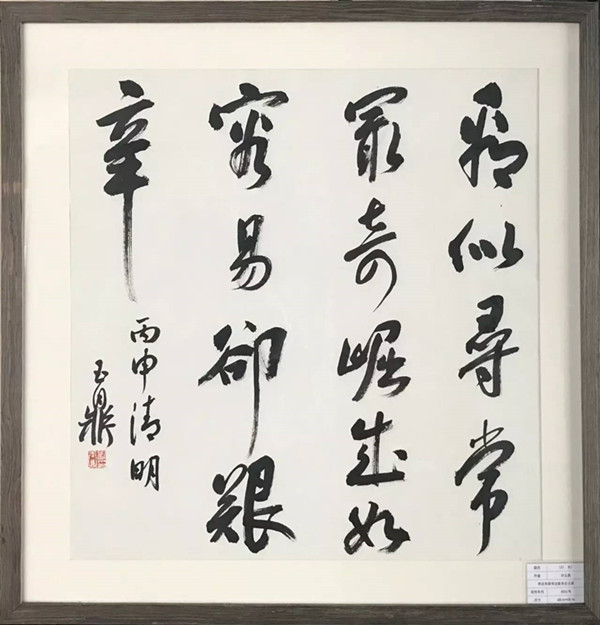 看似尋常
最奇崛成如
容易卻艱
辛
丙申清明
玉鼎